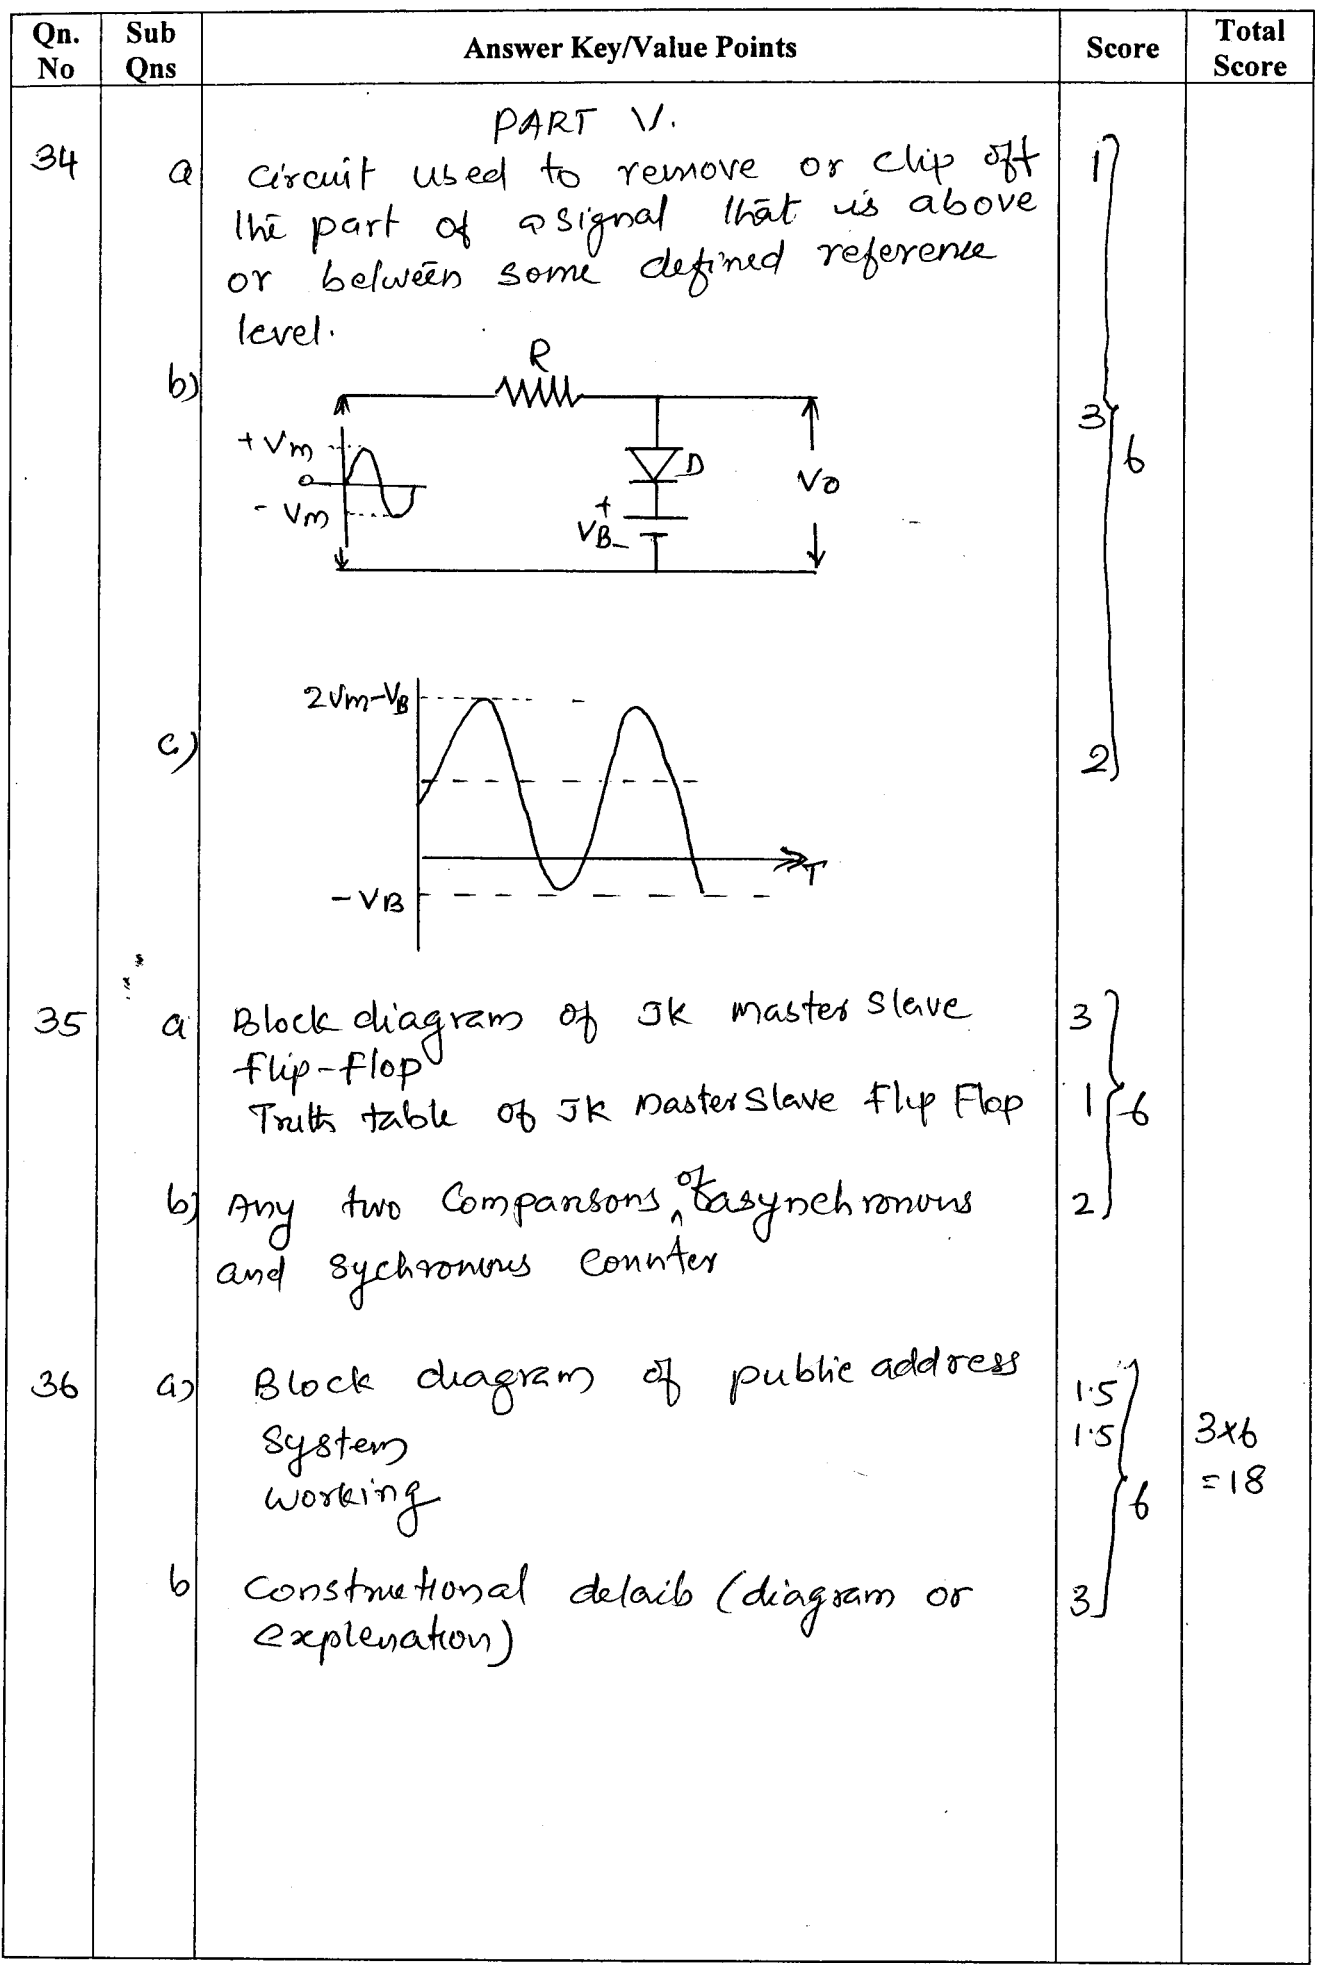 Qn. No
Sub Qns
Answer Key/Value Points
Score
Total Score
PART V.
34 a Circuit used to remove or clip off 1
the part of a signal that is above
or between some defined reference
level.
b)
R
+Vm
0
- Vm
D
+
VB
-
Vo
3
6
c)
2Vm-VB
2
T
-VB
35 a Block diagram of JK master slave 3
flip-flop
Truth table of JK Master Slave Flip Flop 1 6
b) Any two Comparisons of asynchronous 2
and sychronous counter
36 a) Block diagram of public address 1.5
system 1.5 3x6
working 6 =18
b Constructional details (diagram or 3
explenation)